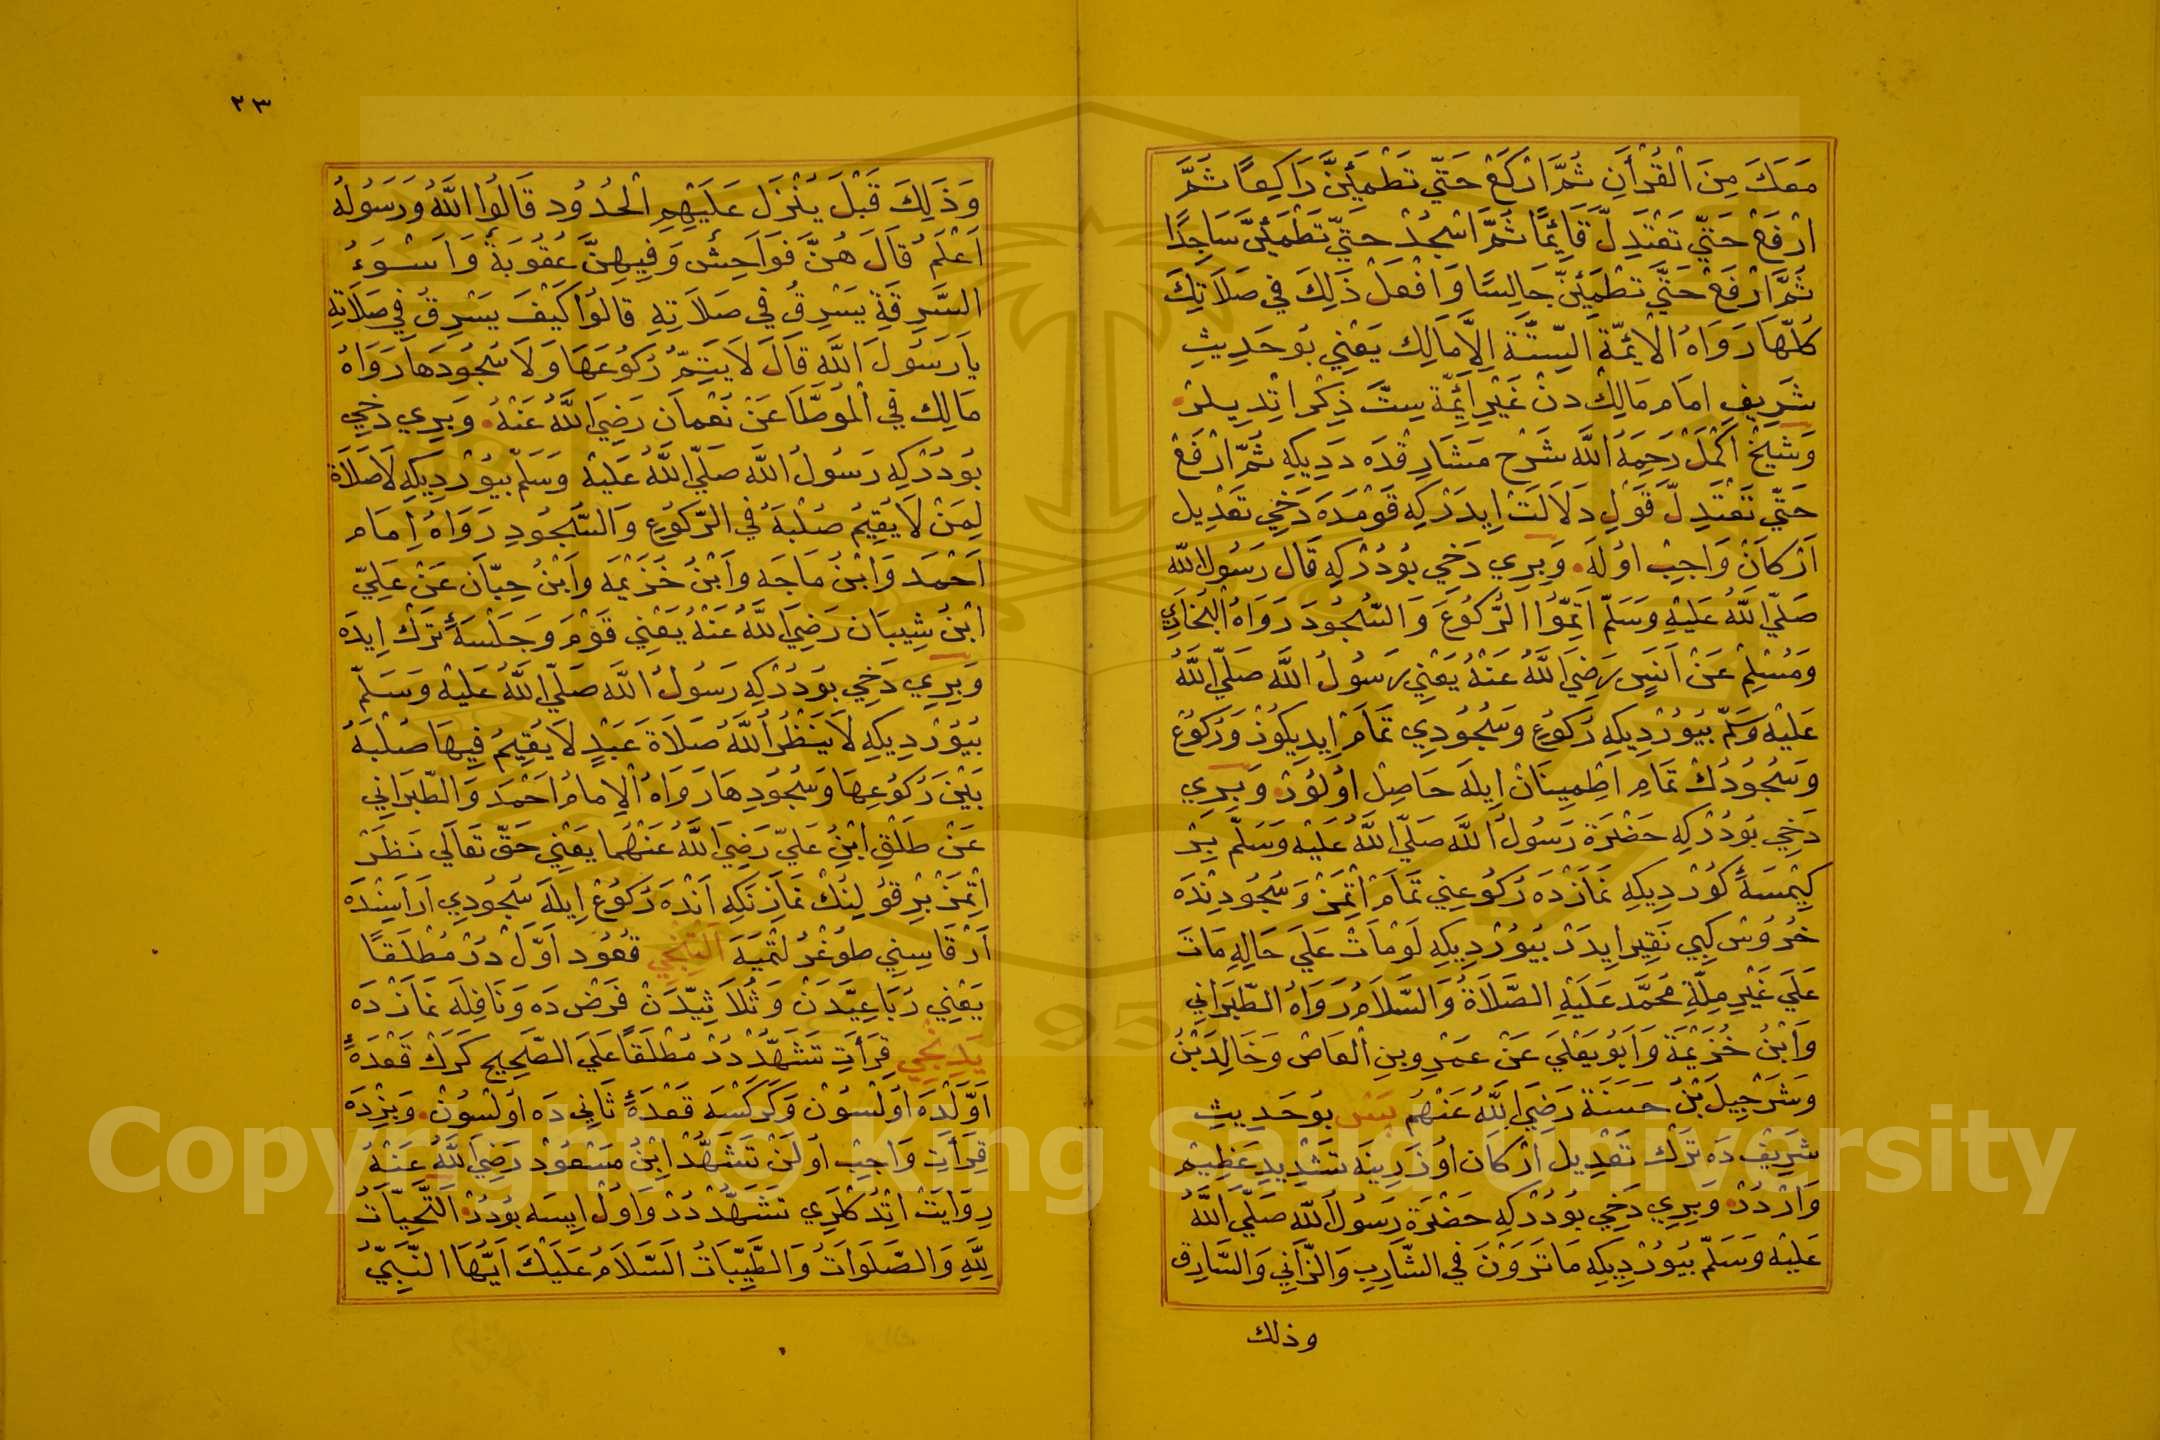 مَعَكَ مِنَ الْقُرْاٰنِ ثُمَّ ارْكَعْ حَتّٰي تَطْمَئِنَّ رَاكِعًا ثُمَّ
ارْفَعْ حَتّٰي تَعْتَدِلَ قَائِمًا ثُمَّ اسْجُدْ حَتّٰي تَطْمَئِنَّ سَاجِدًا
ثُمَّ ارْفَعْ حَتّٰي تَطْمَئِنَّ جَالِسًا وَافْعَلْ ذٰلِكَ فِي صَلَاتِكَ
كُلِّهَا رَوَاهُ الْاَئِمَّةِ السِّتَّةِ اِلَّا مَالِك يَعْنِي بُو حَدِيثِ
شَرِيفِ اِمَام مَالِكْ دنْ غَيْرِ اَئِمَّة سِتَّ ذِكْر اتْدِيلرْ
وَشَيْخْ اَكْمَلْ رَحِمَهُ اللّٰه شَرْح مَشَارِقْدَه دَدِيكِه ثُمَّ ارْفَعْ
حَتّٰي تَعْتَدِلَ قَوْلِ دَلَالَتْ اِيدَرْكِه قَوْمَدَه دَخِي تَعْدِيل
اَرْكَانْ وَاجِبْ اوُلَه وَبِرِي دَخِي بُودُرْكِه قَالَ رَسُولُ اللّٰه
صَلَّي اللّٰهُ عَلَيْهِ وَسَلَّمَ اَتِمُّوا الرُّكُوعَ وَالسُّجُودَ رَوَاهُ الْبُخَارِي
وَمُسْلِمْ عَنْ اَنَسٍ رَضِيَ اللّٰهُ عَنْهُ يَعْنِي رَسُولُ اللّٰه صَلَّي اللّٰهُ
عَلَيْه وَسَلَّمْ بُيُورْدِيكِه رُكُوعِ وَسُجُودِي تَمَامْ اِيدِيكُوزْ وَرُكُوعْ
وَسُجُودُكْ تَمَامِ اطْمِينَانْ اِيلَه حَاصِلْ اوُلُورْ وَبِرِي
دَخِي بُودُرْكِه حَضْرَة رَسُولُ اللّٰه صَلَّي اللّٰهُ عَلَيْه وَسَلَّمْ بِرْ
كِيْمسَه كُورْدِيكِه نَمَازْدَه رُكُوعِنِي تَمَامْ اتْمَزْ وَسُجُودِنْدَه
خُرُوسْ كِبِي نَقِير اِيدَرْ بُيُورْدِيكِه لَوْ مَاتْ عَلَي حَالِهِ مَاتَ
عَلَي غَيْرِ مِلَّةِ مُحَمَّد عَلَيْهِ الصَّلَاةُ وَالسَّلَامُ رَوَاهُ الطَّبَرَانِي
وَابْنُ خُزَيْمَةَ وَاَبُو يَعْلَي عَنْ عَمْرِو بنِ الْعَاصْ وَخَالِدَ بْنُ
وَشَرْحِيلَ بْنُ حَسَنَة رَضِيَ اللّٰهُ عَنْهُمْ بَسْ بُو حَدِيثِ
شَرِيفْدَه تَرْك تَعْدِيل اَرْكَان اوُزَرِينَه تَشْدِيدِ عَظِيمْ
وَارْدُرْ وَبِرِي دَخِي بُودُرْكِه حَضْرَة رَسُولُ اللّٰه صَلَّي اللّٰهُ
عَلَيْه وَسَلَّمْ بُيُورْدِيكِه مَا تَرَوْنَ فِي الشَّارِبِ وَالزَّانِي وَالسَّارِق
وذلك
٢٣
وَذٰلِكَ قَبْلَ يُنْزَلَ عَلَيْهِمِ الْحُدُود قَالُوا اللّٰهُ وَرَسُولُهُ
اَعْلَمُ قَالَ هُنَّ فَوَاحِشُ وَفِيهِنَّ عُقُوبَةٌ وَاَسْوَءُ
السَّرِقَةِ يَسْرِقُ فِي صَلَاتِهِ قَالُوا كَيْفَ يَسْرِقُ فِي صَلَاتِهِ
يَا رَسُولَ اللّٰهِ قَالَ لَا يَتِمُّ رُكُوعَهَا وَلَا سُجُودَهَا رَوَاهُ
مَالِك فِي الْمُوَطَّا عَنْ نُعْمَان رَضِيَ اللّٰهُ عَنْهُ وَبِرِي دَخِي
بُودُرْكِه رَسُولُ اللّٰه صَلَّي اللّٰهُ عَلَيْه وَسَلَّمْ بُيُورْدِيكِه لَا صَلَاةَ
لِمَنْ لَا يُقِيمُ صُلْبَهُ فِي الرُّكُوعِ وَالسُّجُودِ رَوَاهُ اِمَام
اَحْمَد وَابْنُ مَاجَه وَابْنُ خُزَيْمَه وَابْنُ حِبَّان عَنْ عَلِيّ
ابْنُ شِيبَان رَضِيَ اللّٰهُ عَنْهُ يَعْنِي قَوْمَ وَجَلْسَهُ تَرْك اِيدَه
وَبِرِي دَخِي بُودُرْكِه رَسُولُ اللّٰه صَلَّي اللّٰهُ عَلَيْه وَسَلَّمْ
بُيُورْدِيكِه لَا يَنْظُرُ اللّٰهُ صَلَاةَ عَبْدٍ لَا يُقِيمُ فِيهَا صُلْبَهُ
بَيْنَ رُكُوعِهَا وَسُجُودِهَا رَوَاهُ الْاِمَامُ اَحْمَد وَالطَّبَرَانِي
عَنْ طَلْقِ ابْنِ عَلِيّ رَضِيَ اللّٰهُ عَنْهُمَا يَعْنِي حَقّ تَعَالَي نَظَرْ
اتْمَزْ بِرْ قُولِنُكْ نَمَازِنَكِه اَنْدَه رُكُوعْ اِيلَه سُجُودِي اَرَاسِنْدَه
اَرْقَاسِنِي طُوغْرُلتْمَيَه اَلْتِنْجِي قُعُود اَوَّلْ دُرْ مُطْلَقًا
يَعْنِي رُبَاعِيَّدَنْ وَثُلَاثِيَّدَنْ فَرْضدَه وَنَافِلَه نَمَازْدَه
يَدِنْجِي قِرَأَتِ تَشَهُّدْدُرْ مُطْلَقًا عَلَي الصَّحِيحِ كَرَكْ قَعْدَهٔ
اَوَّلَدَه اوُلْسُونْ وَكَرَكْسَه قَعْدَهٔ ثَانِيدَه اوُلْسُونْ وَبِزْدَه
قِرَأَتِ وَاجِبْ اوُلَنْ تَشَهُّدُ ابْنُ مَسْعُودْ رَضِيَ اللّٰهُ عَنْهُ
رِوَايَتْ اتْدُكْلَرِي تَشَهُّدْدُرْ وَاوُلْ ايسَه بُودُرْ اَلتَّحِيَّاتُ
لِلّٰهِ وَالصَّلَوَاتُ وَالطَّيِّبَاتُ اَلسَّلَامُ عَلَيْكَ اَيُّهَا النَّبِيُّ
Copyright © King Saud University
1957